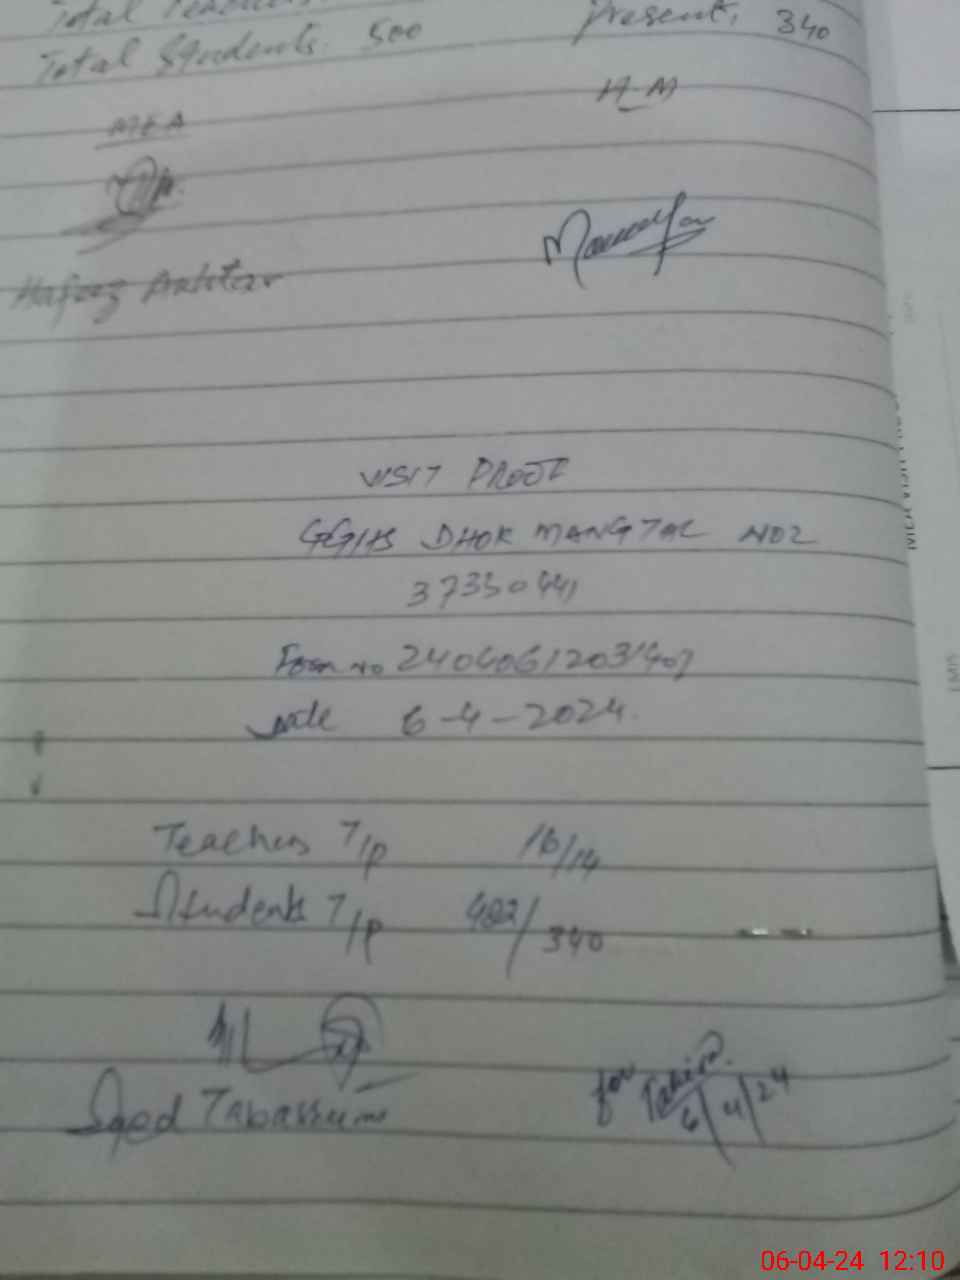 Total Teachers.
Total Students. 500 Present. 340
MEA H-M
Hafeez Akhtar
VISIT PROOF
GGHS DHOK MANGTAL NO2
37330441
Form no 24040612031407
Date 6-4-2024.
Teachers T/P 16/14
Students T/P 482/340
Syed Tabassum
for Tahira.
6/4/24
06-04-24 12:10